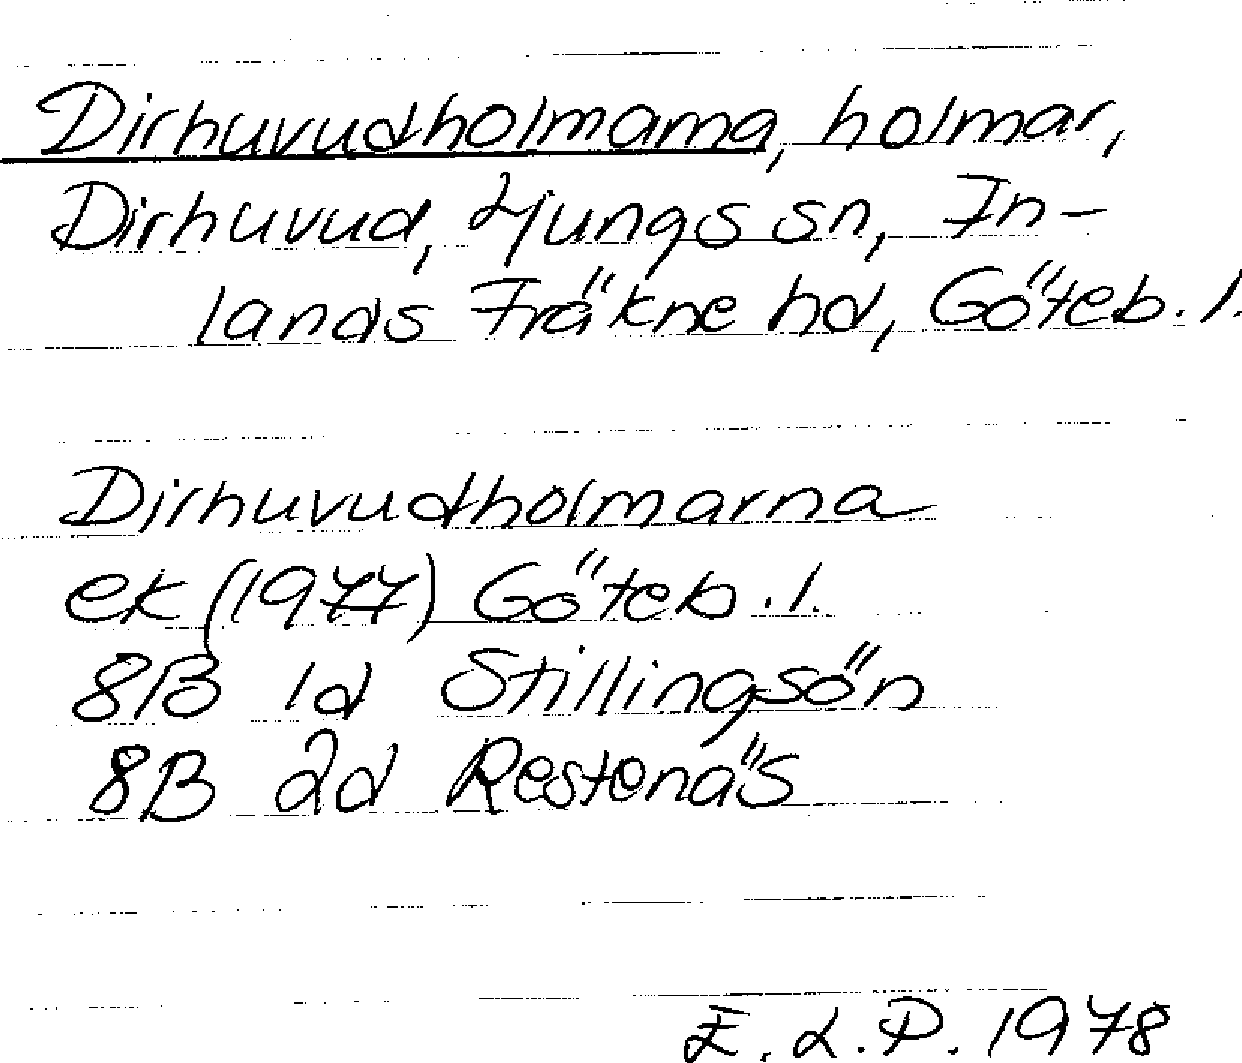 Dirhuvudholmarna, holmar,
Dirhuvud, Ljungs sn, In-
lands Fräkne hd, Göteb. l.
Dirhuvudholmarna
ek (1977) Göteb. l.
8B 1d Stillingsön
8B 2d Restenäs
E. L. P. 1978